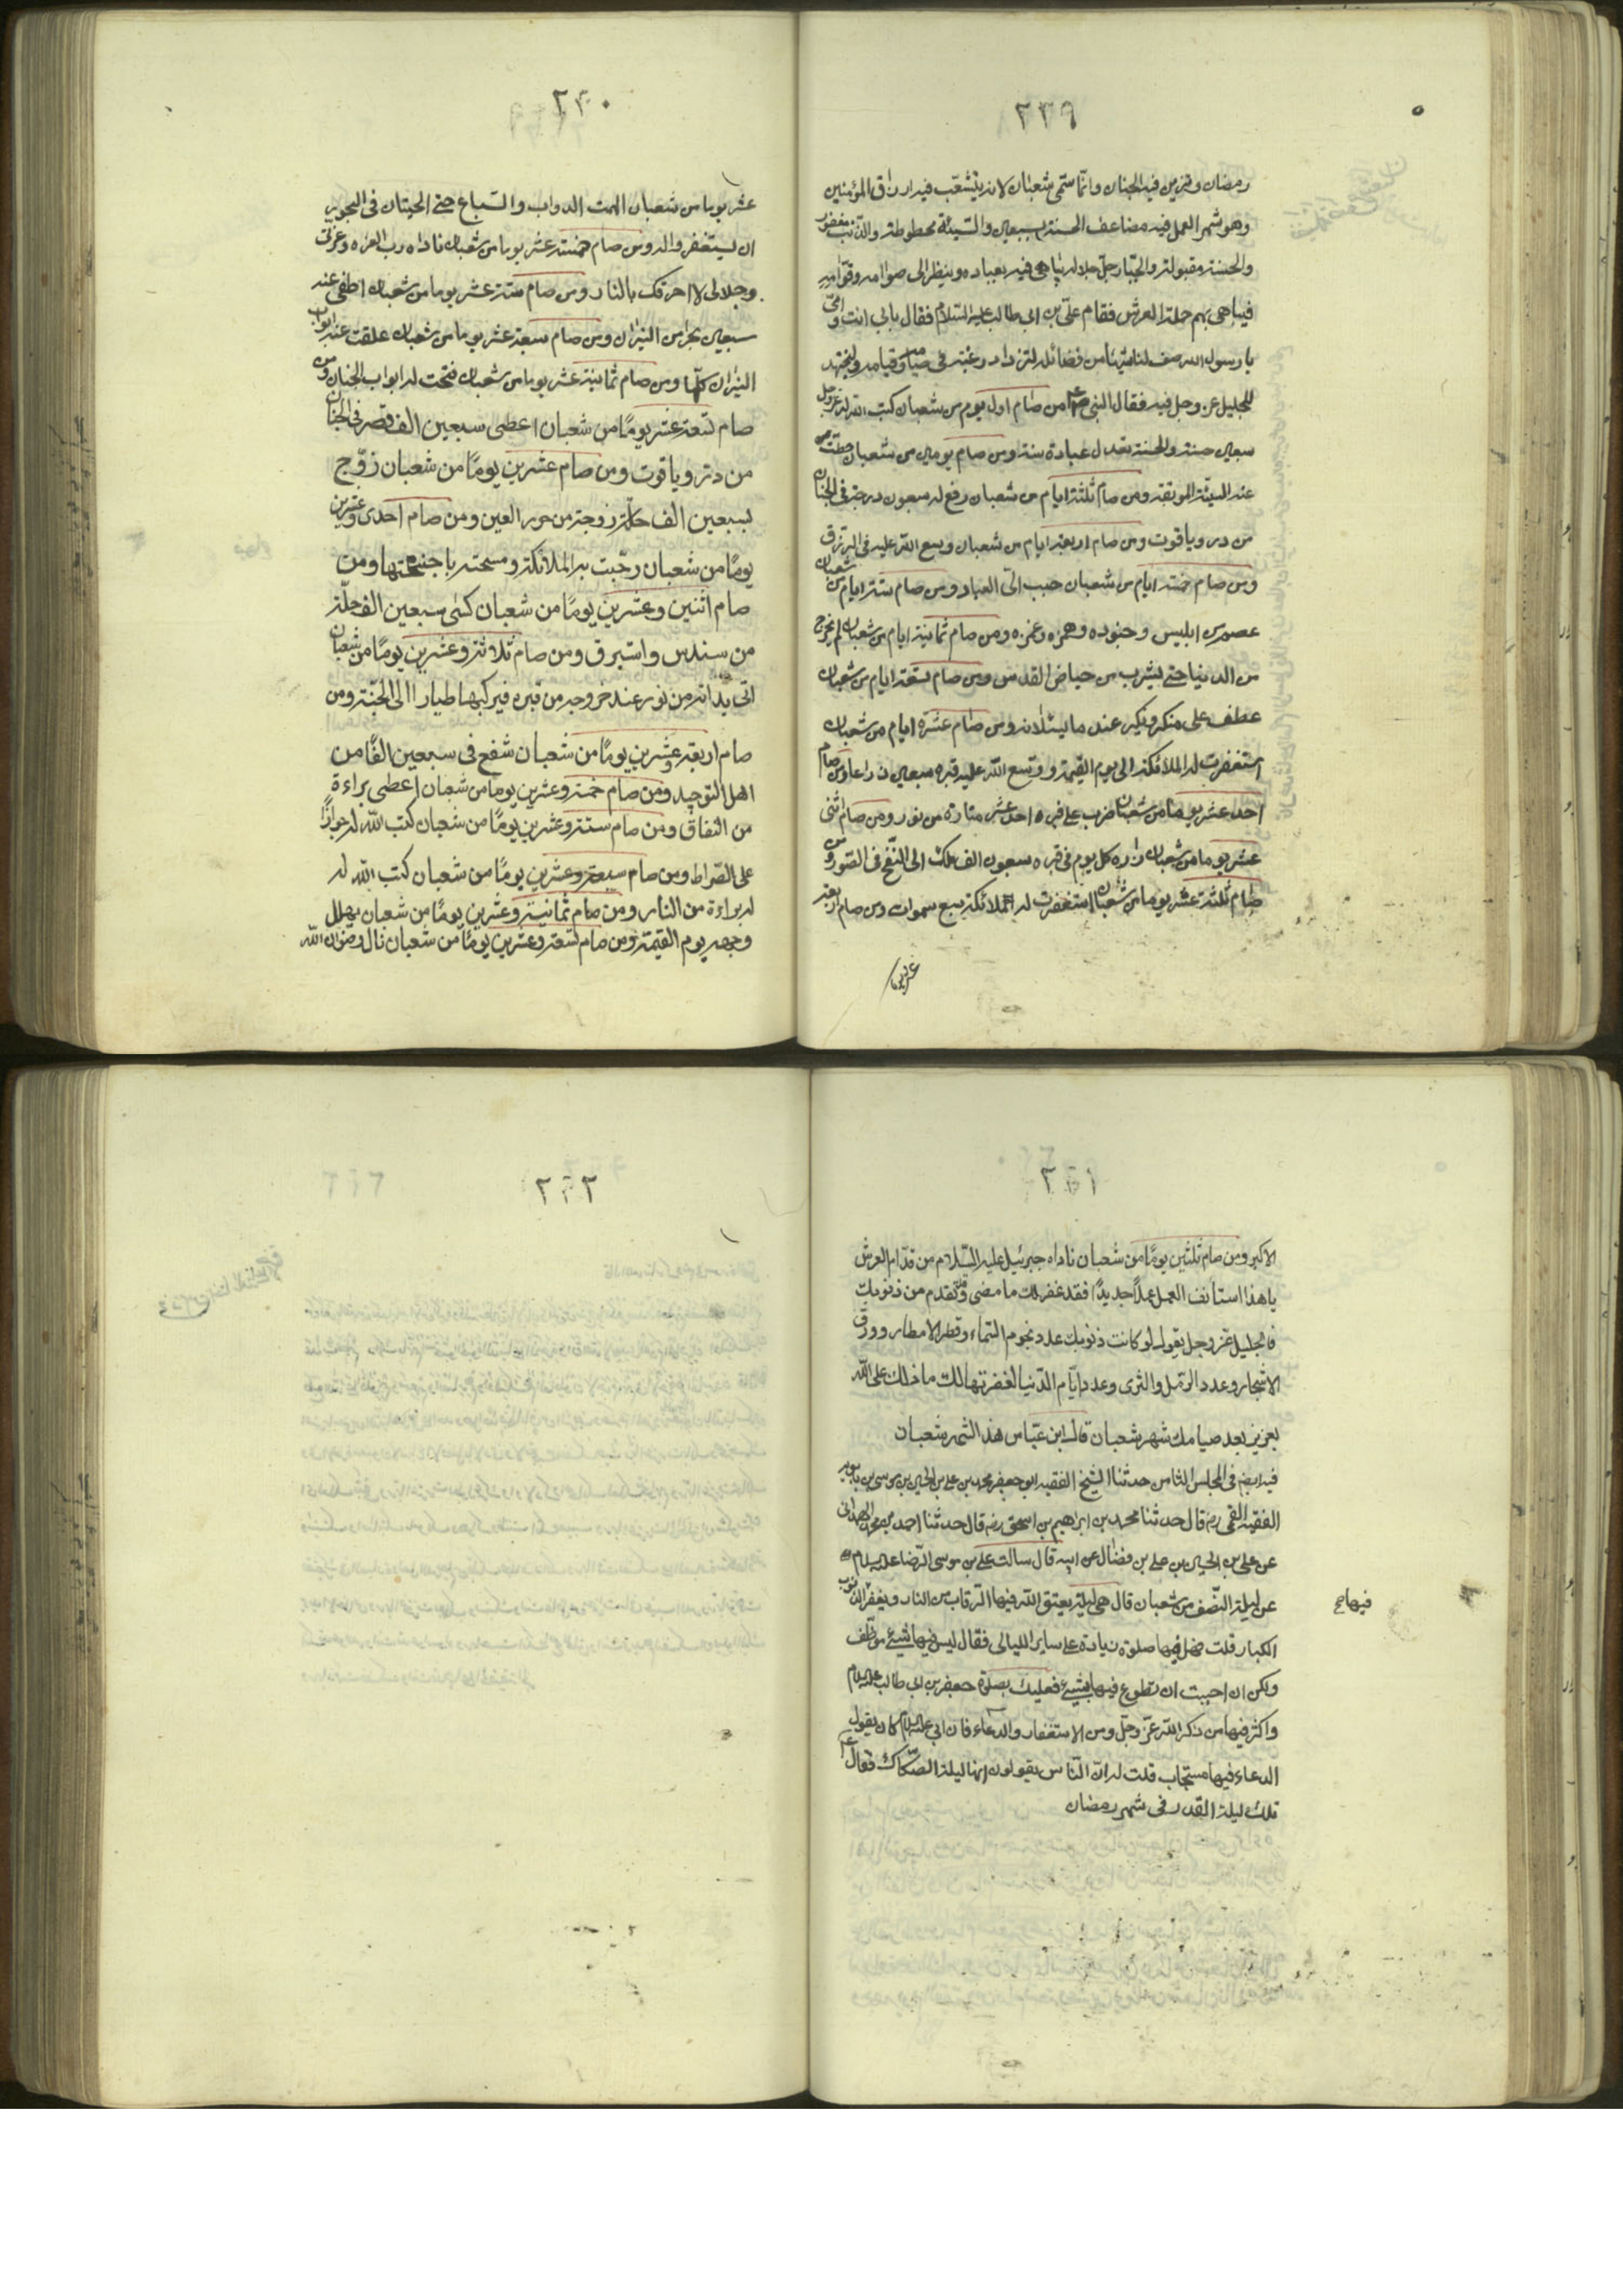 ٢٣٩
رمضان وتزين فيه الجنان وانّما سمّى شعبان لانه يتشعّب فيه ارزاق المؤمنين
وهو شهر العمل فيه مضاعف الحسنة بسبعين والسّيئة محطوطة والذّنب مغفور
والحسنة مقبولة والجبّار جلّ جلاله يباهى فيه بعباده وينظر الى صوامه وقوّامه
فيباهى بهم حملة العرش فقام على بن ابى طالب عليه السّلام فقال بابى انت وامّى
يا رسول الله صف لنا شيئا من فضائله لنزداد رغبة فى صيامه وقيامه ولنجتهد
للجليل عز وجل فيه فقال النبى ص من صام اول يوم من شعبان كتب الله له عز وجل
سبعين حسنة والحسنة تعدل عبادة سنة ومن صام يومين من شعبان حطّت
عنه السيّئة الموبقة ومن صام ثلثة ايام من شعبان رفع له سبعون درجة فى الجنان
من در وياقوت ومن صام اربعة ايام من شعبان وسع الله عليه فى الرزق
ومن صام خمسة ايام من شعبان حبب الى العباد ومن صام ستة ايام من شعبان
عصم من ابليس وجنوده وهمزه وغمزه ومن صام ثمانية ايام من شعبان لم يخرج
من الدنيا حتى يشرب من حياض القدس ومن صام تسعة ايام من شعبان
عطف على منكر ونكير عند ما يسئلانه ومن صام عشرة ايام من شعبان
استغفرت له الملائكة الى يوم القيمة ووسع الله عليه قبره سبعين ذراعا ومن صام
احد عشر يوما من شعبان ضرب على قبره احد عشر منارة من نور ومن صام اثنى
عشر يوما من شعبان زاره كل يوم فى قبره سبعون الف ملك الى النّفخ فى الصّور ومن
صام ثلثة عشر يوما من شعبان استغفرت له الملائكة سبع سموات ومن صام اربعة
عشر يوما
٢٤٠
عشر يوما من شعبان الهمت الدواب والسّباع حتى الحيتان فى البحور
ان يستغفروا له ومن صام خمسة عشر يوما من شعبان ناداه رب العزه وعزتى
وجلالى لا احرقك بالنار ومن صام ستة عشر يوما من شعبان اطفى عنه
سبعين بحرا من النيران ومن صام سبعة عشر يوما من شعبان علقت عنه ابواب
النيران كلّها ومن صام ثمانية عشر يوما من شعبان فتحت له ابواب الجنان ومن
صام تسعة عشر يومًا من شعبان اعطى سبعين الف قصر فى الجنان
من در وياقوت ومن صام عشرين يومًا من شعبان زوّج
بسبعين الف زوجة من حور العين ومن صام احدى وعشرين
يومًا من شعبان رحّبت به الملائكة ومسحته باجنحتها ومن
صام اثنين وعشرين يومًا من شعبان كسى سبعين الف حلّة
من سندس واستبرق ومن صام ثلاثة وعشرين يومًا من شعبان
اتى بدابة من نور عند خروجه من قبره فيركبها طيارا الى الجنّة ومن
صام اربعة وعشرين يومًا من شعبان شفع فى سبعين الفًا من
اهل التوحيد ومن صام خمسة وعشرين يوما من شعبان اعطى براءة
من النفاق ومن صام ستة وعشرين يومًا من شعبان كتب الله له جوازًا
على الصّراط ومن صام سبعة وعشرين يومًا من شعبان كتب الله له
له براءة من النار ومن صام ثمانية وعشرين يومًا من شعبان يهلل
وجهه يوم القيمة ومن صام تسعة وعشرين يومًا من شعبان نال رضوان الله
٢٤١
الاكبر ومن صام ثلثين يومًا من شعبان ناداه جبرئيل عليه السّلام من قدّام العرش
يا هذا استانف العمل عملاً جديدًا فقد غفر لك ما مضى وتقدم من ذنوبك
فالجليل عز وجل يقول لو كانت ذنوبك عدد نجوم السّماء وقطر الامطار وورق
الاشجار وعدد الرّمل والثرى وعدد ايّام الدّنيا لغفرتها لك ما ذلك على الله
بعزيز بعد صيامك شهر شعبان قال ابن عبّاس هذا الشهر شعبان
فيه ايضا فى المجلس الثامن حدثنا الشيخ الفقيه ابو جعفر محمد بن على بن الحسين بن موسى بن بابويه
الفقيه القمى رضه قال حدثنا محمد بن ابراهيم بن اسحق رضه قال حدثنا احمد بن محمد الهمدانى
عن على بن الحسين بن على بن فضال عن ابيه قال سالت على بن موسى الرّضا عليه السلام
عن ليلة النّصف من شعبان قال هى ليلة يعتق الله فيها الرّقاب من النار ويغفر الذنوب
فيها صح
الكبار قلت فهل فيها صلوة زيادة على ساير الليالى فقال ليس فيها شيئ موظّف
ولكن ان احببت ان تطوع فيها بشيئ فعليك بصلوة جعفر بن ابى طالب عليه السلام
واكثر فيها من ذكر الله عزّ وجلّ ومن الاستغفار والدعاء فان ابى عليه السلام كان يقول
الدعاء فيها مستجاب قلت له انّ النّاس يقولون انها ليلة الصّكاك فقال ع
تلك ليلة القدر فى شهر رمضان
٢٤٢